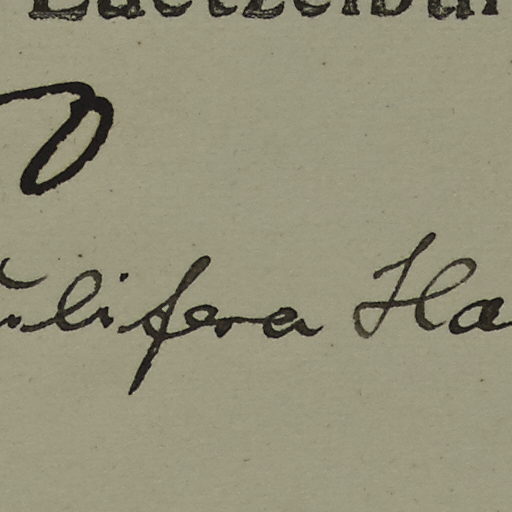 Luetzelbur
ulifera Ha